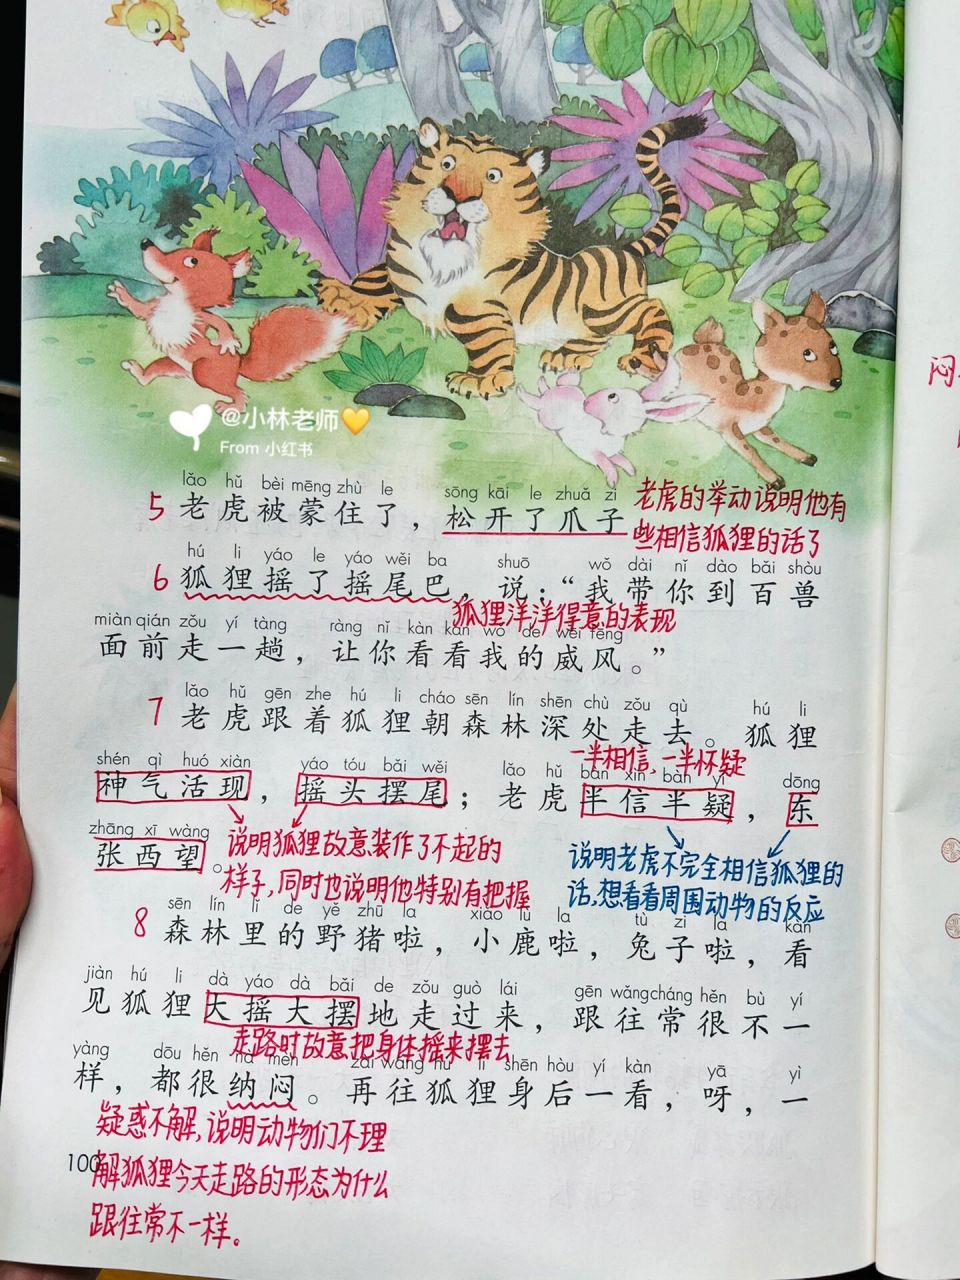 @小林老师💛
From 小红书
lǎo hǔ bèi mēng zhù le sōng kāi le zhuǎ zi
5 老虎被蒙住了，松开了爪子
老虎的举动说明他有
些相信狐狸的话了
hú li yáo le yáo wěi ba shuō wǒ dài nǐ dào bǎi shòu
6 狐狸摇了摇尾巴，说：“我带你到百兽
狐狸洋洋得意的表现
miàn qián zǒu yí tàng ràng nǐ kàn kan wǒ de wēi fēng
面前走一趟，让你看看我的威风。”
lǎo hǔ gēn zhe hú li cháo sēn lín shēn chù zǒu qù hú li
7 老虎跟着狐狸朝森林深处走去。狐狸
一半相信，一半怀疑
shén qì huó xiàn yáo tóu bǎi wěi lǎo hǔ bàn xìn bàn yí dōng
神气活现，摇头摆尾；老虎半信半疑，东
zhāng xī wàng
张西望。
说明狐狸故意装作了不起的
样子，同时也说明他特别有把握
说明老虎不完全相信狐狸的
话，想看看周围动物的反应
sēn lín lǐ de yě zhū la xiǎo lù la tù zi la kàn
8 森林里的野猪啦，小鹿啦，兔子啦，看
jiàn hú li dà yáo dà bǎi de zǒu guò lái gēn wǎng cháng hěn bù yí
见狐狸大摇大摆地走过来，跟往常很不一
走路时故意把身体摇来摆去
yàng dōu hěn nà mèn zài wǎng hú li shēn hòu yí kàn yā yì
样，都很纳闷。再往狐狸身后一看，呀，一
疑惑不解，说明动物们不理
解狐狸今天走路的形态为什么
跟往常不一样。
100
闷